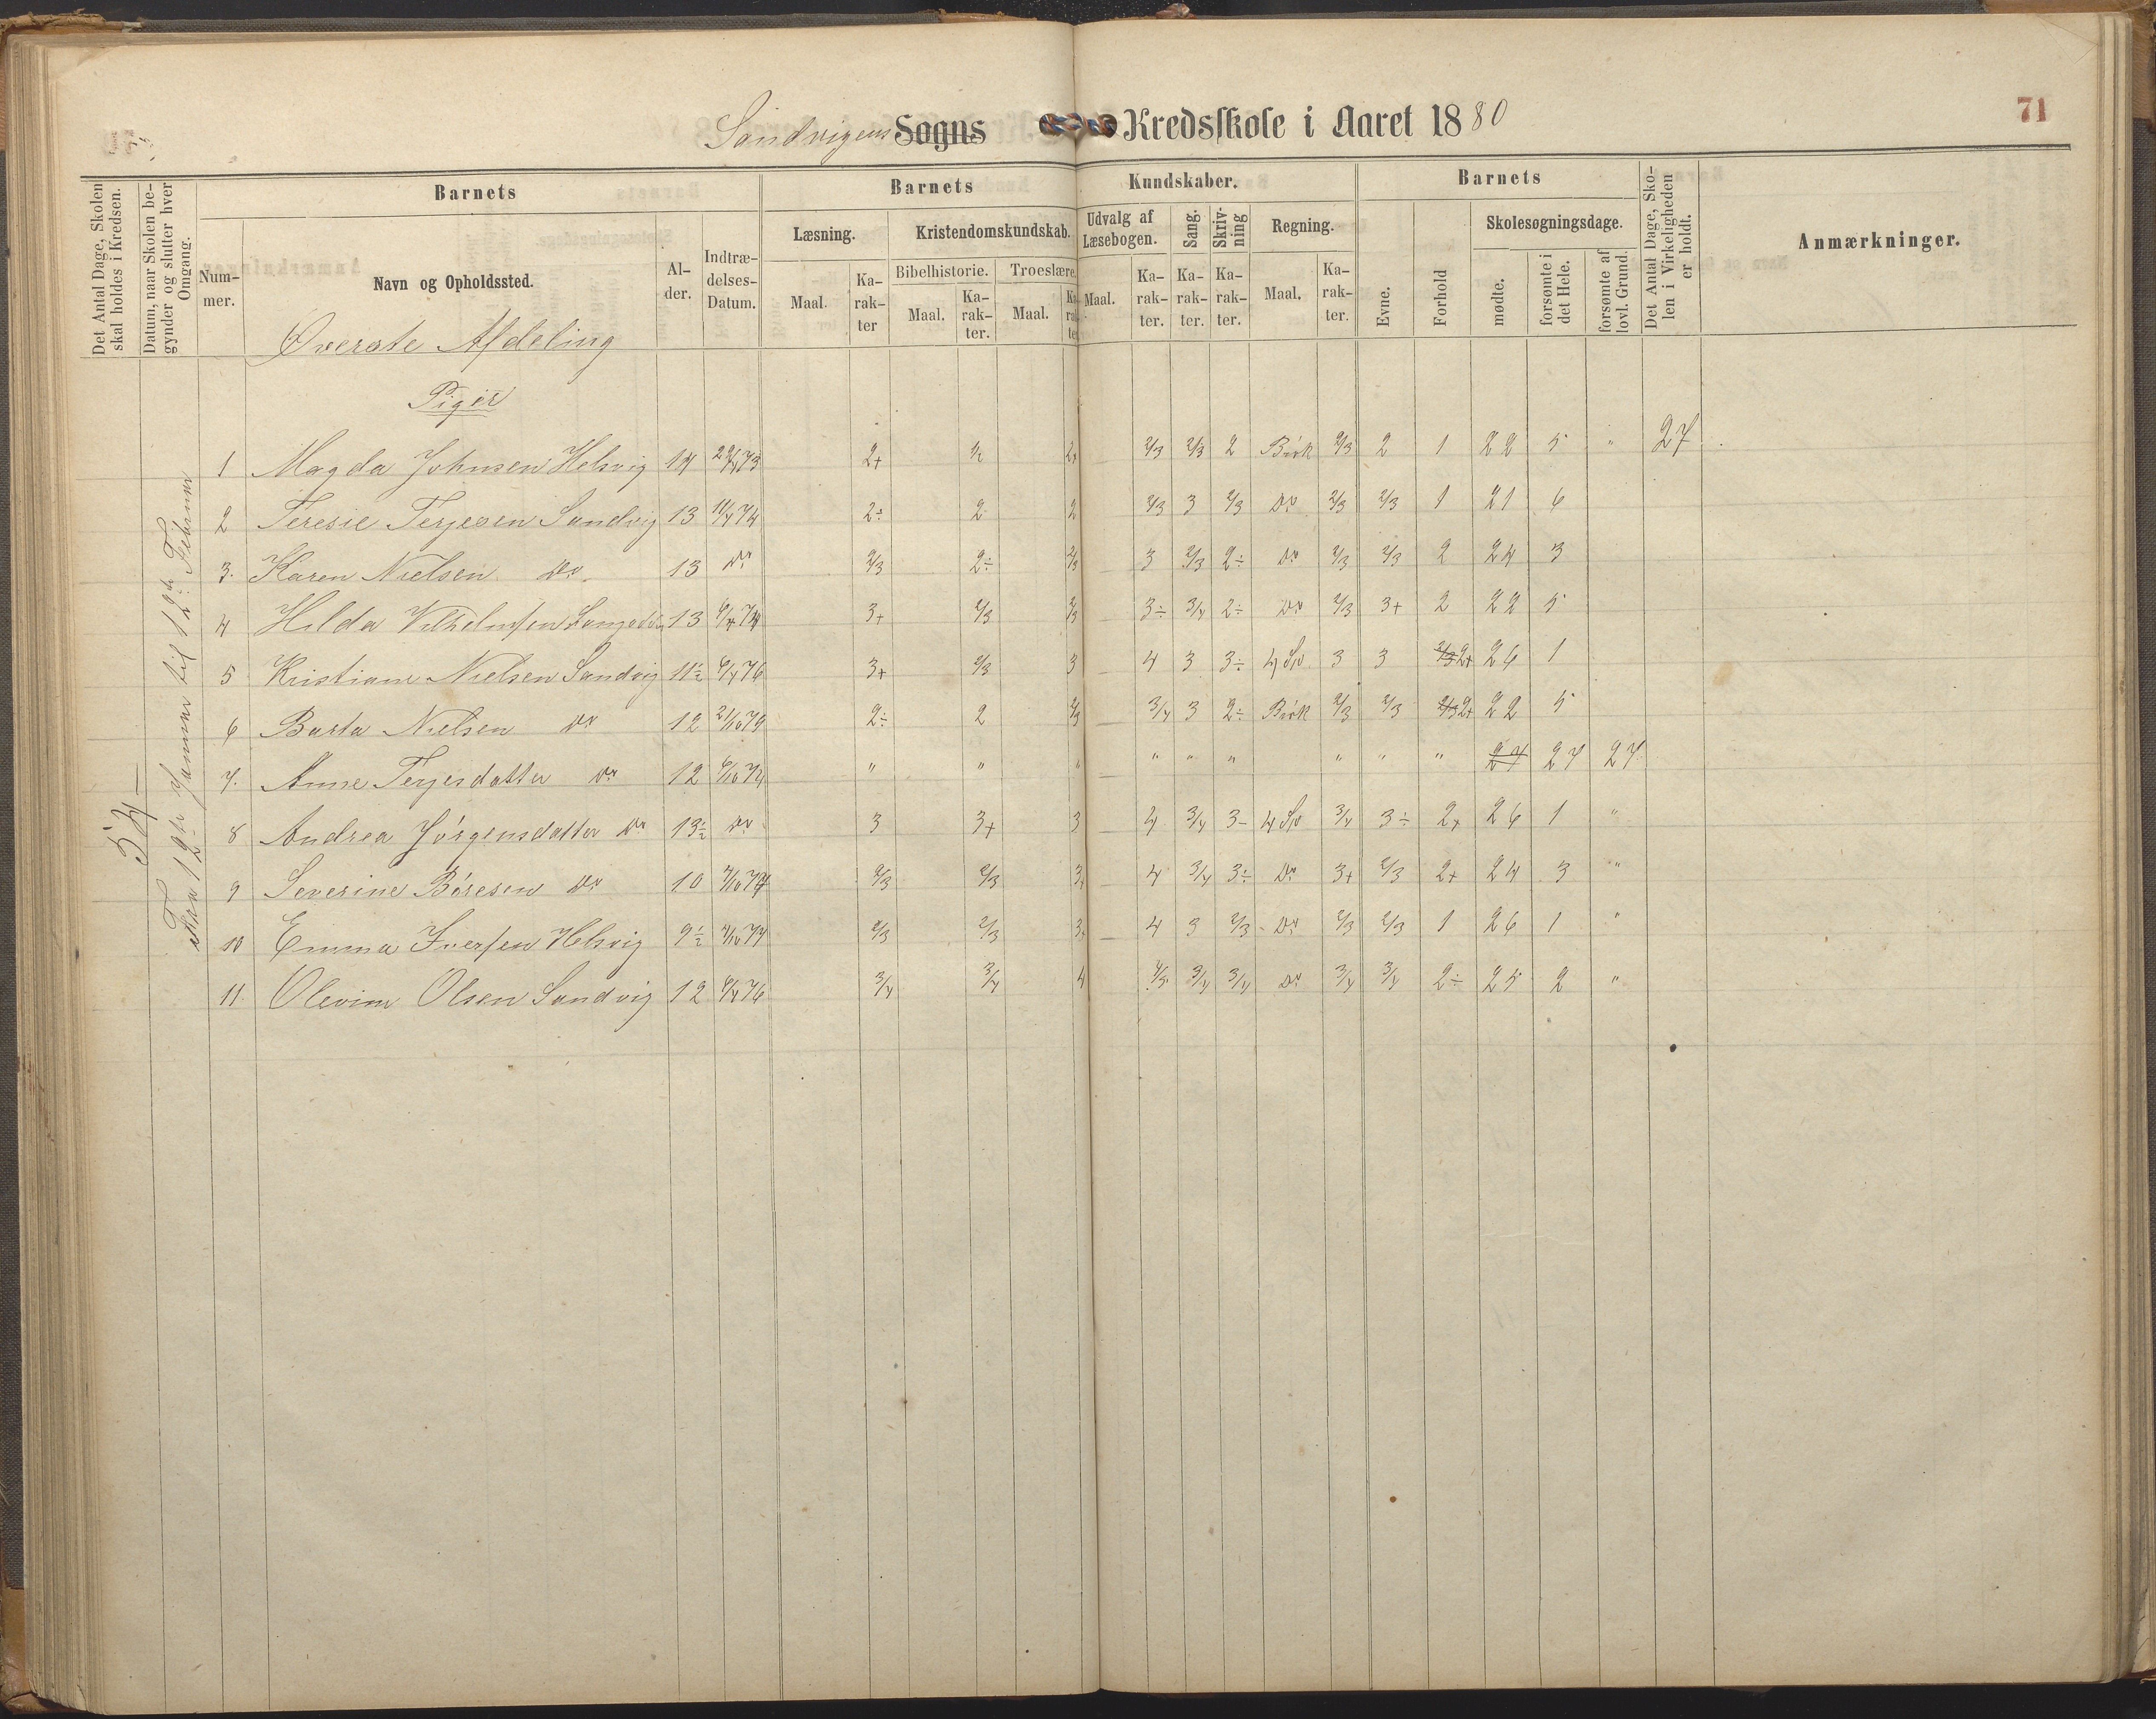 71
Sandvigens Sogns Kredsskole i Aaret 1880
Det Antal Dage, Skolen skal holdes i Kredsen.
Datum, naar Skolen begynder og slutter hver Omgang.
Barnets
Nummer.
Navn og Opholdssted.
Alder.
Indtrædelses-Datum.
Barnets Kundskaber.
Læsning.
Maal.
Karakter
Kristendomskundskab.
Bibelhistorie.
Maal.
Karakter.
Troeslære.
Maal.
Karakter
Udvalg af Læsebogen.
Maal.
Karakter.
Sang.
Karakter.
Skrivning
Karakter.
Regning.
Maal.
Karakter.
Barnets
Evne.
Forhold
Skolesøgningsdage.
mødte.
forsømte i det Hele.
forsømte af lovl. Grund.
Det Antal Dage, Skolen i Virkeligheden er holdt.
Anmærkninger.
Øverste Afdeling
Piger
54
Fra 12te Januar til 12te Februar
1 Magda Johnsen Helsvig 14 2+ 2/3 2/3 2 Brøk 2/3 2 1 22 5 " 27
2 Teresie Terjesen Sandvig 13 11/4 74 2÷ 2 2 2/3 3 2/3 Do 2/3 2/3 1 21 6
3. Karen Nielsen Do 13 Do 2/3 2÷ 2/3 3 2/3 2÷ Do 2/3 2/3 2 24 3
4 Hilda Vilhelmsen 13 3+ 2/3 2/3 3÷ 3/4 2÷ Do 2/3 3+ 2 22 5
5 Kristiane Nielsen Sandvig 11½ 6/4 76 3+ 2/3 3 4 3 3÷ 4 Sp 3 3 2/3 2+ 26 1
6 Berta Nielsen Do 12 2÷ 2 2/3 3/4 3 2÷ Brøk 2/3 2/3 2/3 2+ 22 5
7. Anne Terjesdatter Do 12 " " " " " " " " " 27 27 27
8 Andrea Jørgensdatter Do 13½ Do 3 3+ 3 4 3/4 3- 4 Sp 3/4 3÷ 2+ 26 1 "
9 Severine Børesen Do 10 2/3 2/3 3+ 4 3/4 3÷ Do 3+ 2/3 2+ 24 3 "
10 Emma Iversen Helsvig 9½ 2/3 2/3 3+ 4 3 2/3 Do 2/3 2/3 1 26 1 "
11. Olevine Olsen Sandvig 12 6/4 76 3/4 3/4 4 4/5 3/4 3/4 Do 3/4 3/4 2÷ 25 2 "